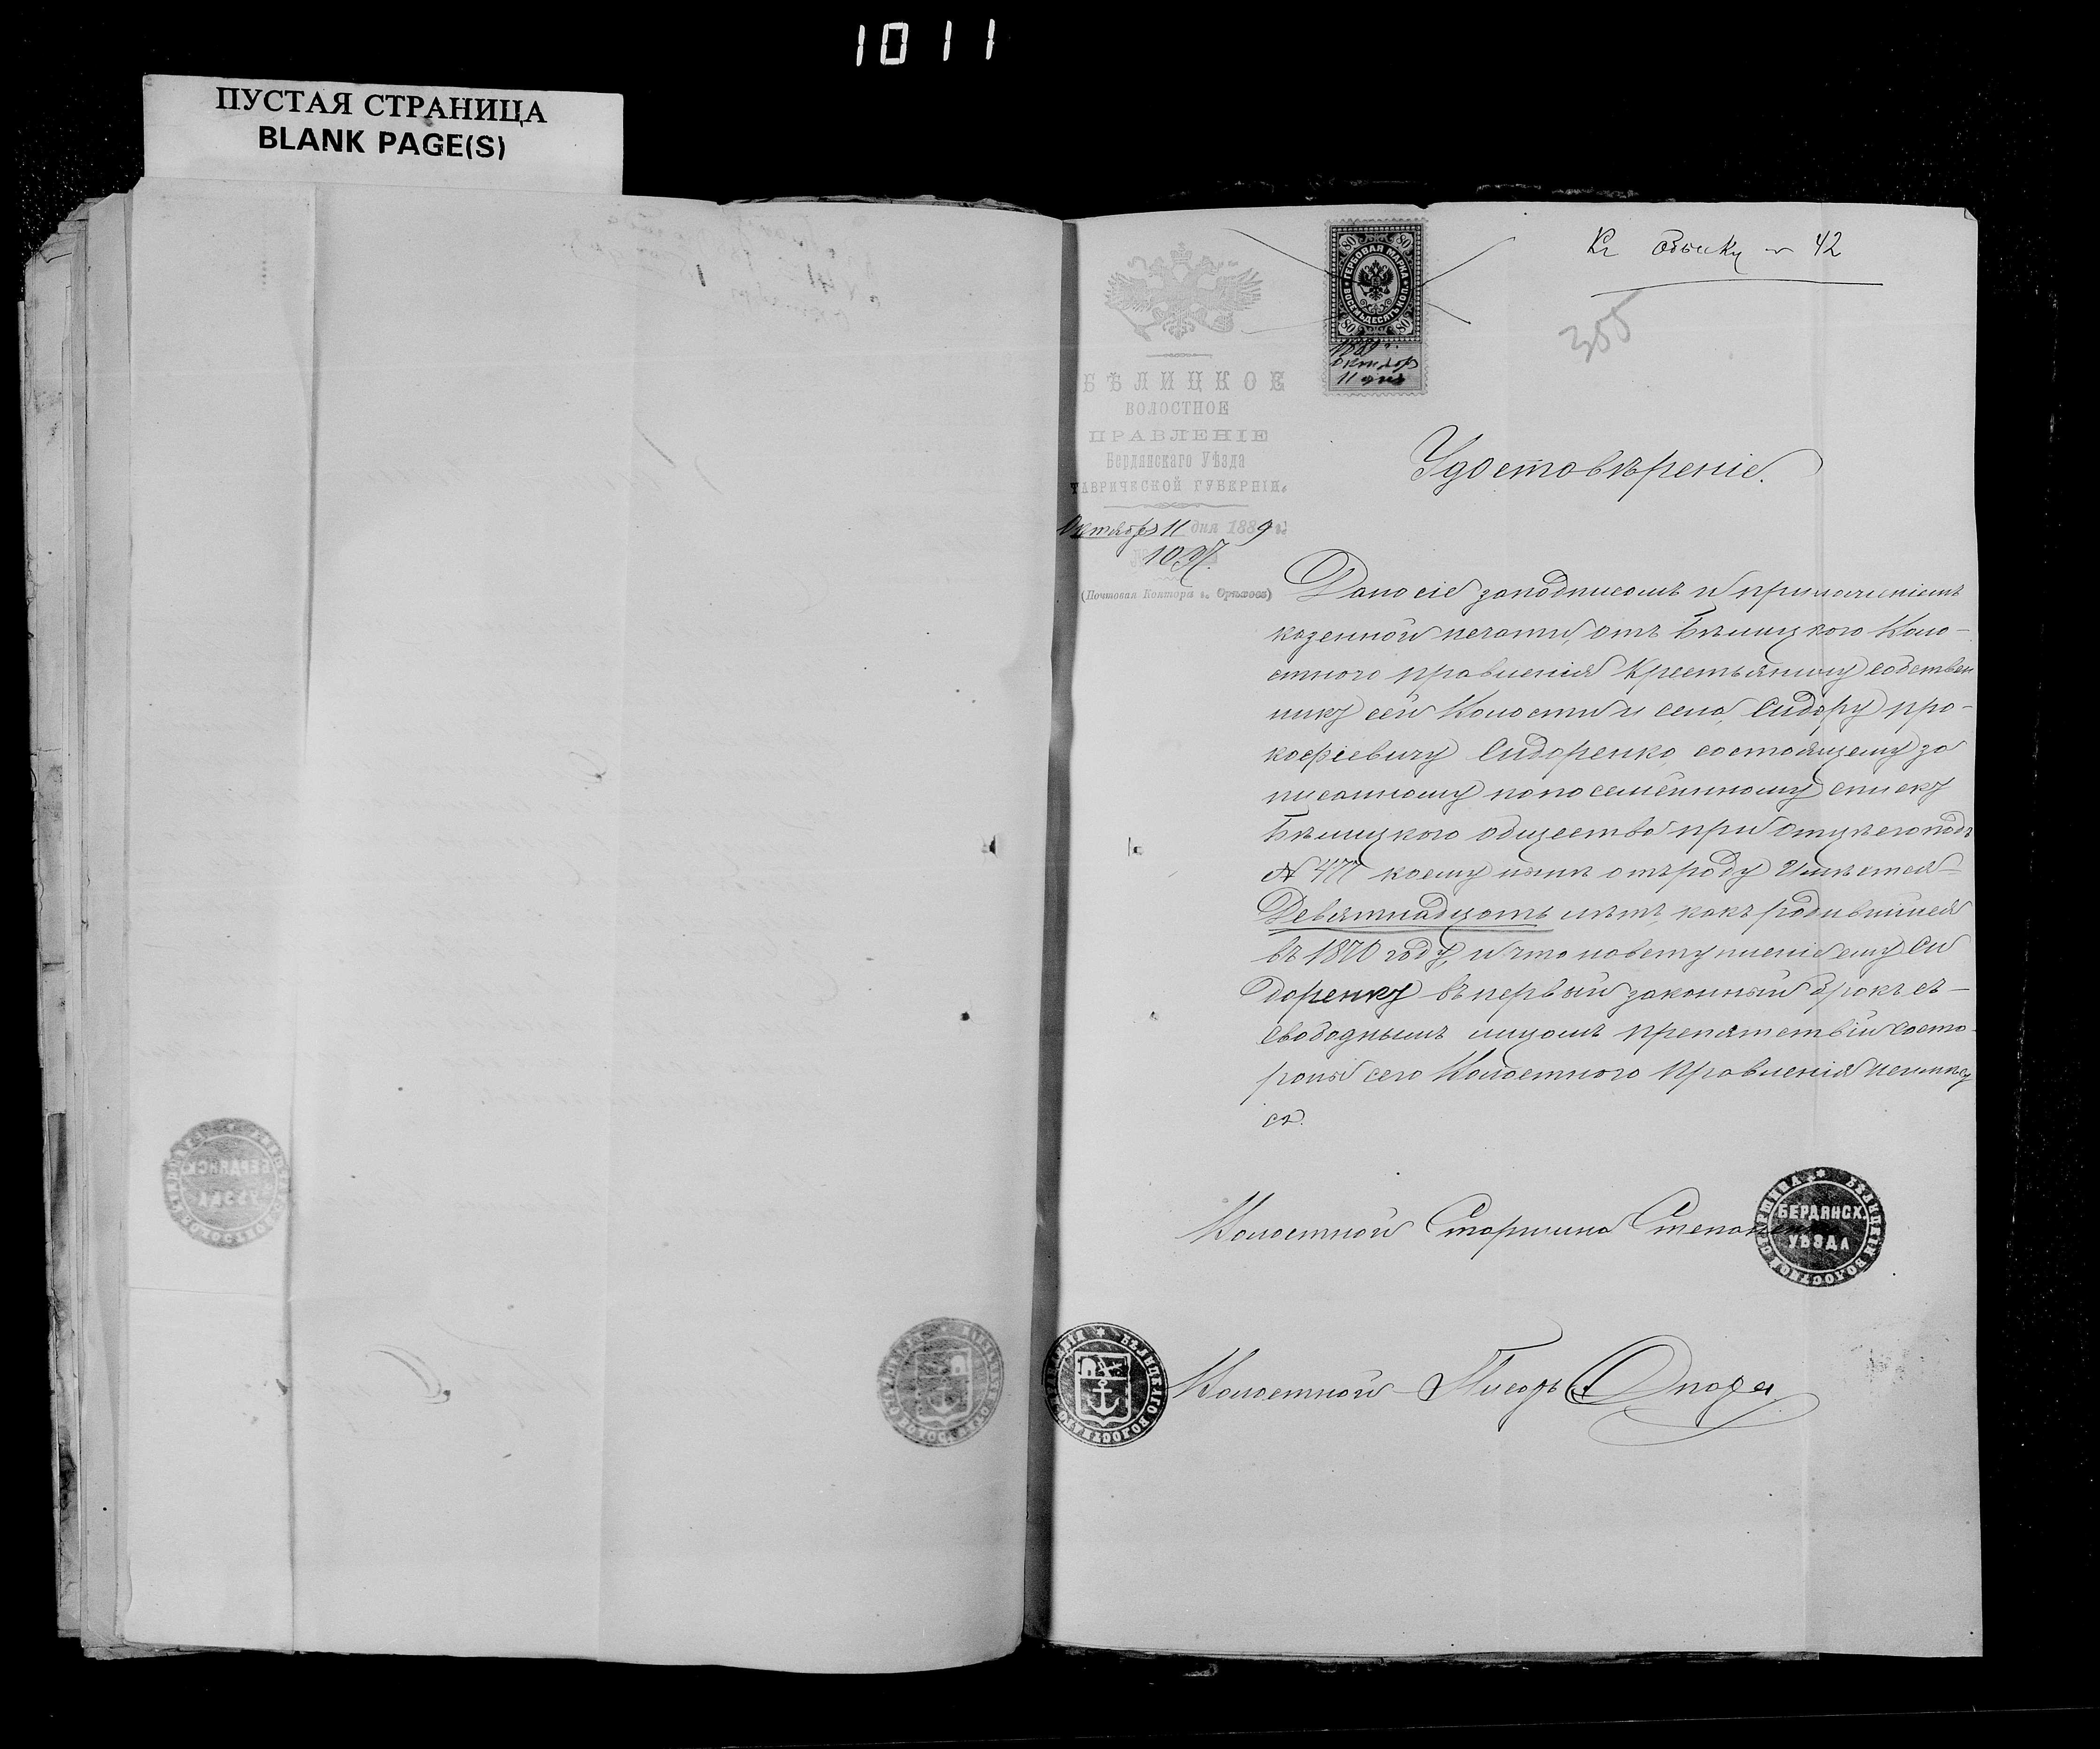 1011
ПУСТАЯ СТРАНИЦА
BLANK PAGE(S)
Къ обыску № 42
355
ГЕРБОВАЯ МАРКА
ВОСЕМЬДЕСЯТЪ КОП.
80 80
80 80
1889 г.
октября
11 дня
БѢЛИЦКОЕ
ВОЛОСТНОЕ
ПРАВЛЕНІЕ
Бердянскаго Уѣзда
ТАВРИЧЕСКОЙ ГУБЕРНІИ.
Октября 11 дня 1889 г.
(Почтовая Контора г. Орѣховъ)
Удостовѣреніе.
Дано сіе за подписомъ и приложеніемъ
казенной печати, отъ Бѣлицкого Воло-
стного правленія Крестьянину собствен
нику сей Волости и села, Сидору Про-
кофіевичу Сидоренко, состоящему за
писанному по посемейнному списку
Бѣлицкого общества при отцѣ его подъ
№ 477 коему нынѣ отъ роду Имѣется
Девятнадцать лѣтъ, какъ родившійся
въ 1870 году, и что по вступленіе ему Си
доренку въ первый законный бракъ съ
свободнымъ лицомъ препятствій со сто-
роны сего Волостного Правленія неимѣ
ет
Волостной Старшина Степаненко
БЕРДЯНСК
УѢЗДА
Волостной Писарь